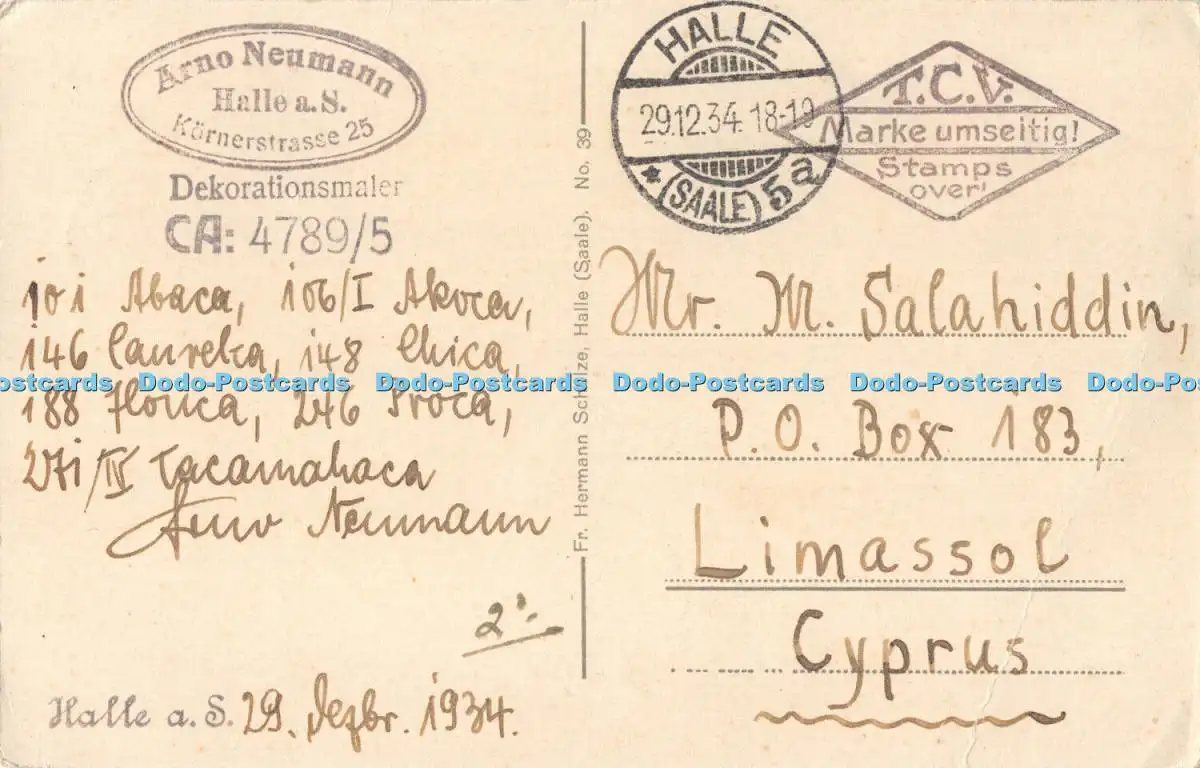 Arno Neumann
Halle a.S.
Körnerstrasse 25
Dekorationsmaler
CA: 4789/5
101 Abaca, 106/I Akoca,
146 Caureka, 148 Chica,
188 Flouca, 246 Proca,
271/IV Tacamahaca
Arno Neumann
2'-
Halle a. S. 29. Dezbr. 1934.
Fr. Hermann Schulze, Halle (Saale). No. 39
HALLE
29.12.34. 18-19
* (SAALE) 5a
T.C.V.
Marke umseitig!
Stamps
over!
Mr. M. Salahiddin,
P.O. Box 183,
Limassol
Cyprus
Dodo-Postcards Dodo-Postcards Dodo-Postcards Dodo-Postcards Dodo-Postcards